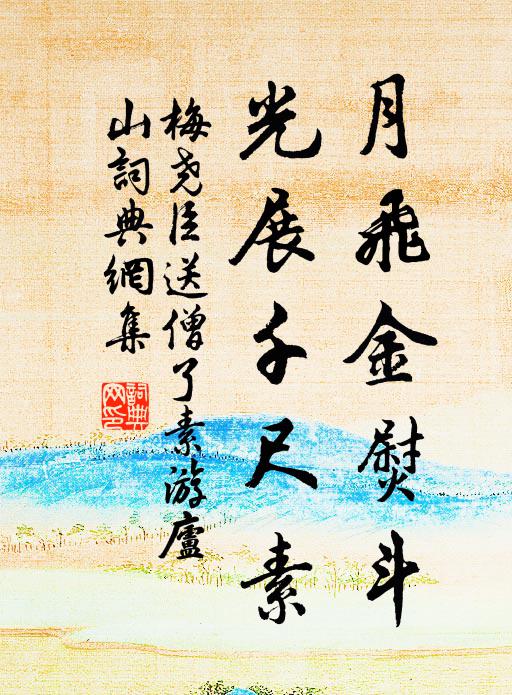 月飛金熨斗
光展千尺素
梅尧臣送僧了素游廬
山詞典網集
詞典
网印